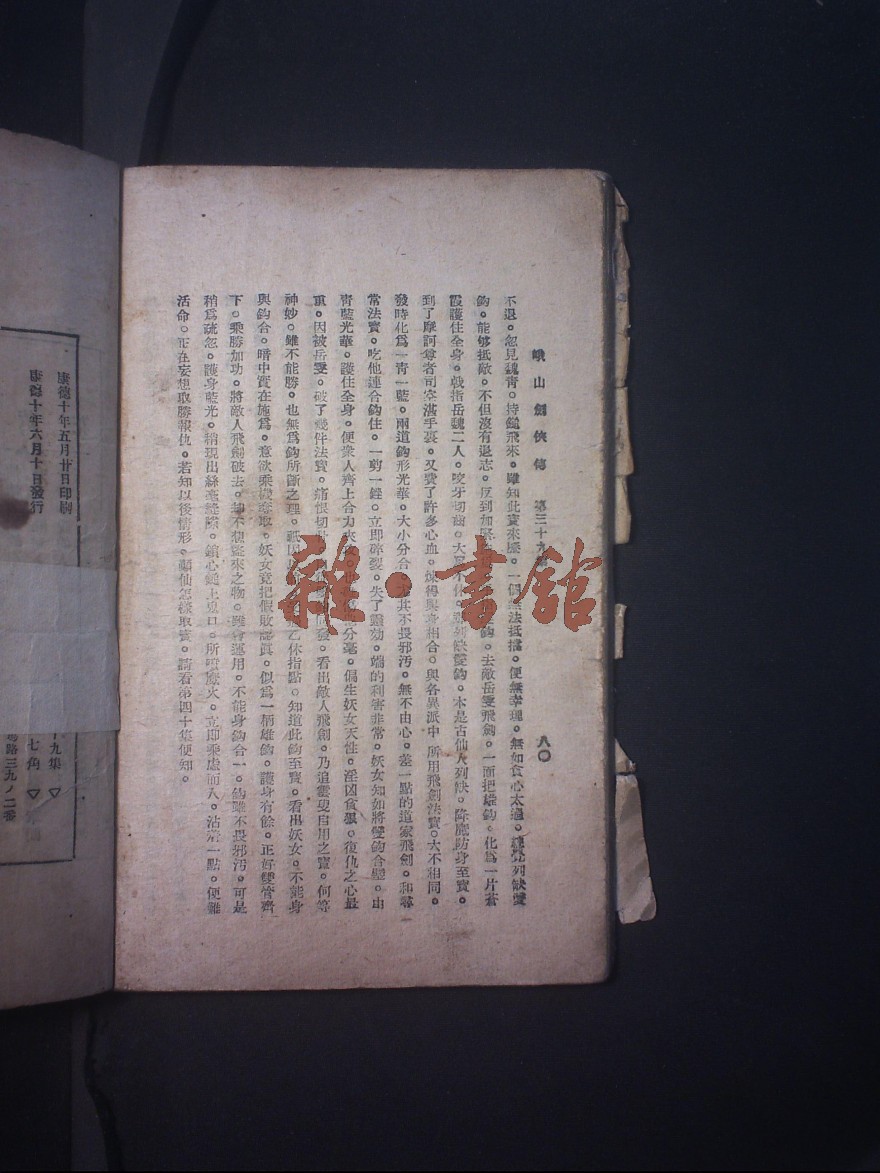 峨山劍俠傳 第三十九 八〇
不退。忽見魏青。持鎚飛來。雖知此寶來歷。一個無法抵擋。便無幸理。無如貪心太過。總覺列缺雙
鈎。能够抵敵。不但沒有退志。反到加 鈎。去敵岳雯飛劍。一面把雄鈎。化爲一片蒼
霞護住全身。戟指岳魏二人。咬牙切齒。大罵不休。 列缺雙鈎。本是古仙人列缺。降魔防身至寶。
到了摩訶尊者司空湛手裏。又費了許多心血。煉得與身相合。與各異派中 所用飛劍法寶。大不相同。
發時化爲一青一藍。兩道鈎形光華。大小分合 其不畏邪汚。無不由心。差一點的道家飛劍。和尋一
常法寶。吃他連合鈎住。一剪一銼。立即碎裂。失了靈効。端的利害非常。妖女知如將雙鈎合璧。由
青藍光華。護住全身。便衆人齊上合力夾攻 分毫。偏生妖女天性。淫凶貪狠。復仇之心最
重。因被岳雯。破了幾件法寶。痛恨切 發。看出敵人飛劍。乃追雲叟自用之寶。何等
神妙。雖不能勝。也無爲鈎所斷之理。祇因 乙休指點。知道此鈎至寶。看出妖女。不能身
與鈎合。暗中實在施爲。意欲乘機奪取。妖女竟把假敗認眞。似爲一柄雄鈎。護身有餘。正好雙管齊
下。乘勝加功。將敵人飛劍破去。却不想盜來之物。雖會運用。不能身鈎合一。鈎雖不畏邪汚。可是
稍爲疏忽。護身藍光。稍現出絲毫縫隙。鎖心鎚上鬼口。所噴魔火。立即乘虛而入。沾染一點。便難
活命。正在妄想取勝報仇。若知以後情形。顯仙怎樣取寶。請看第四十集便知。
康德十年五月廿日印刷
康德十年六月十日發行
九集 ▽
七角 ▽
馬路三九ノ二番
雜·書館